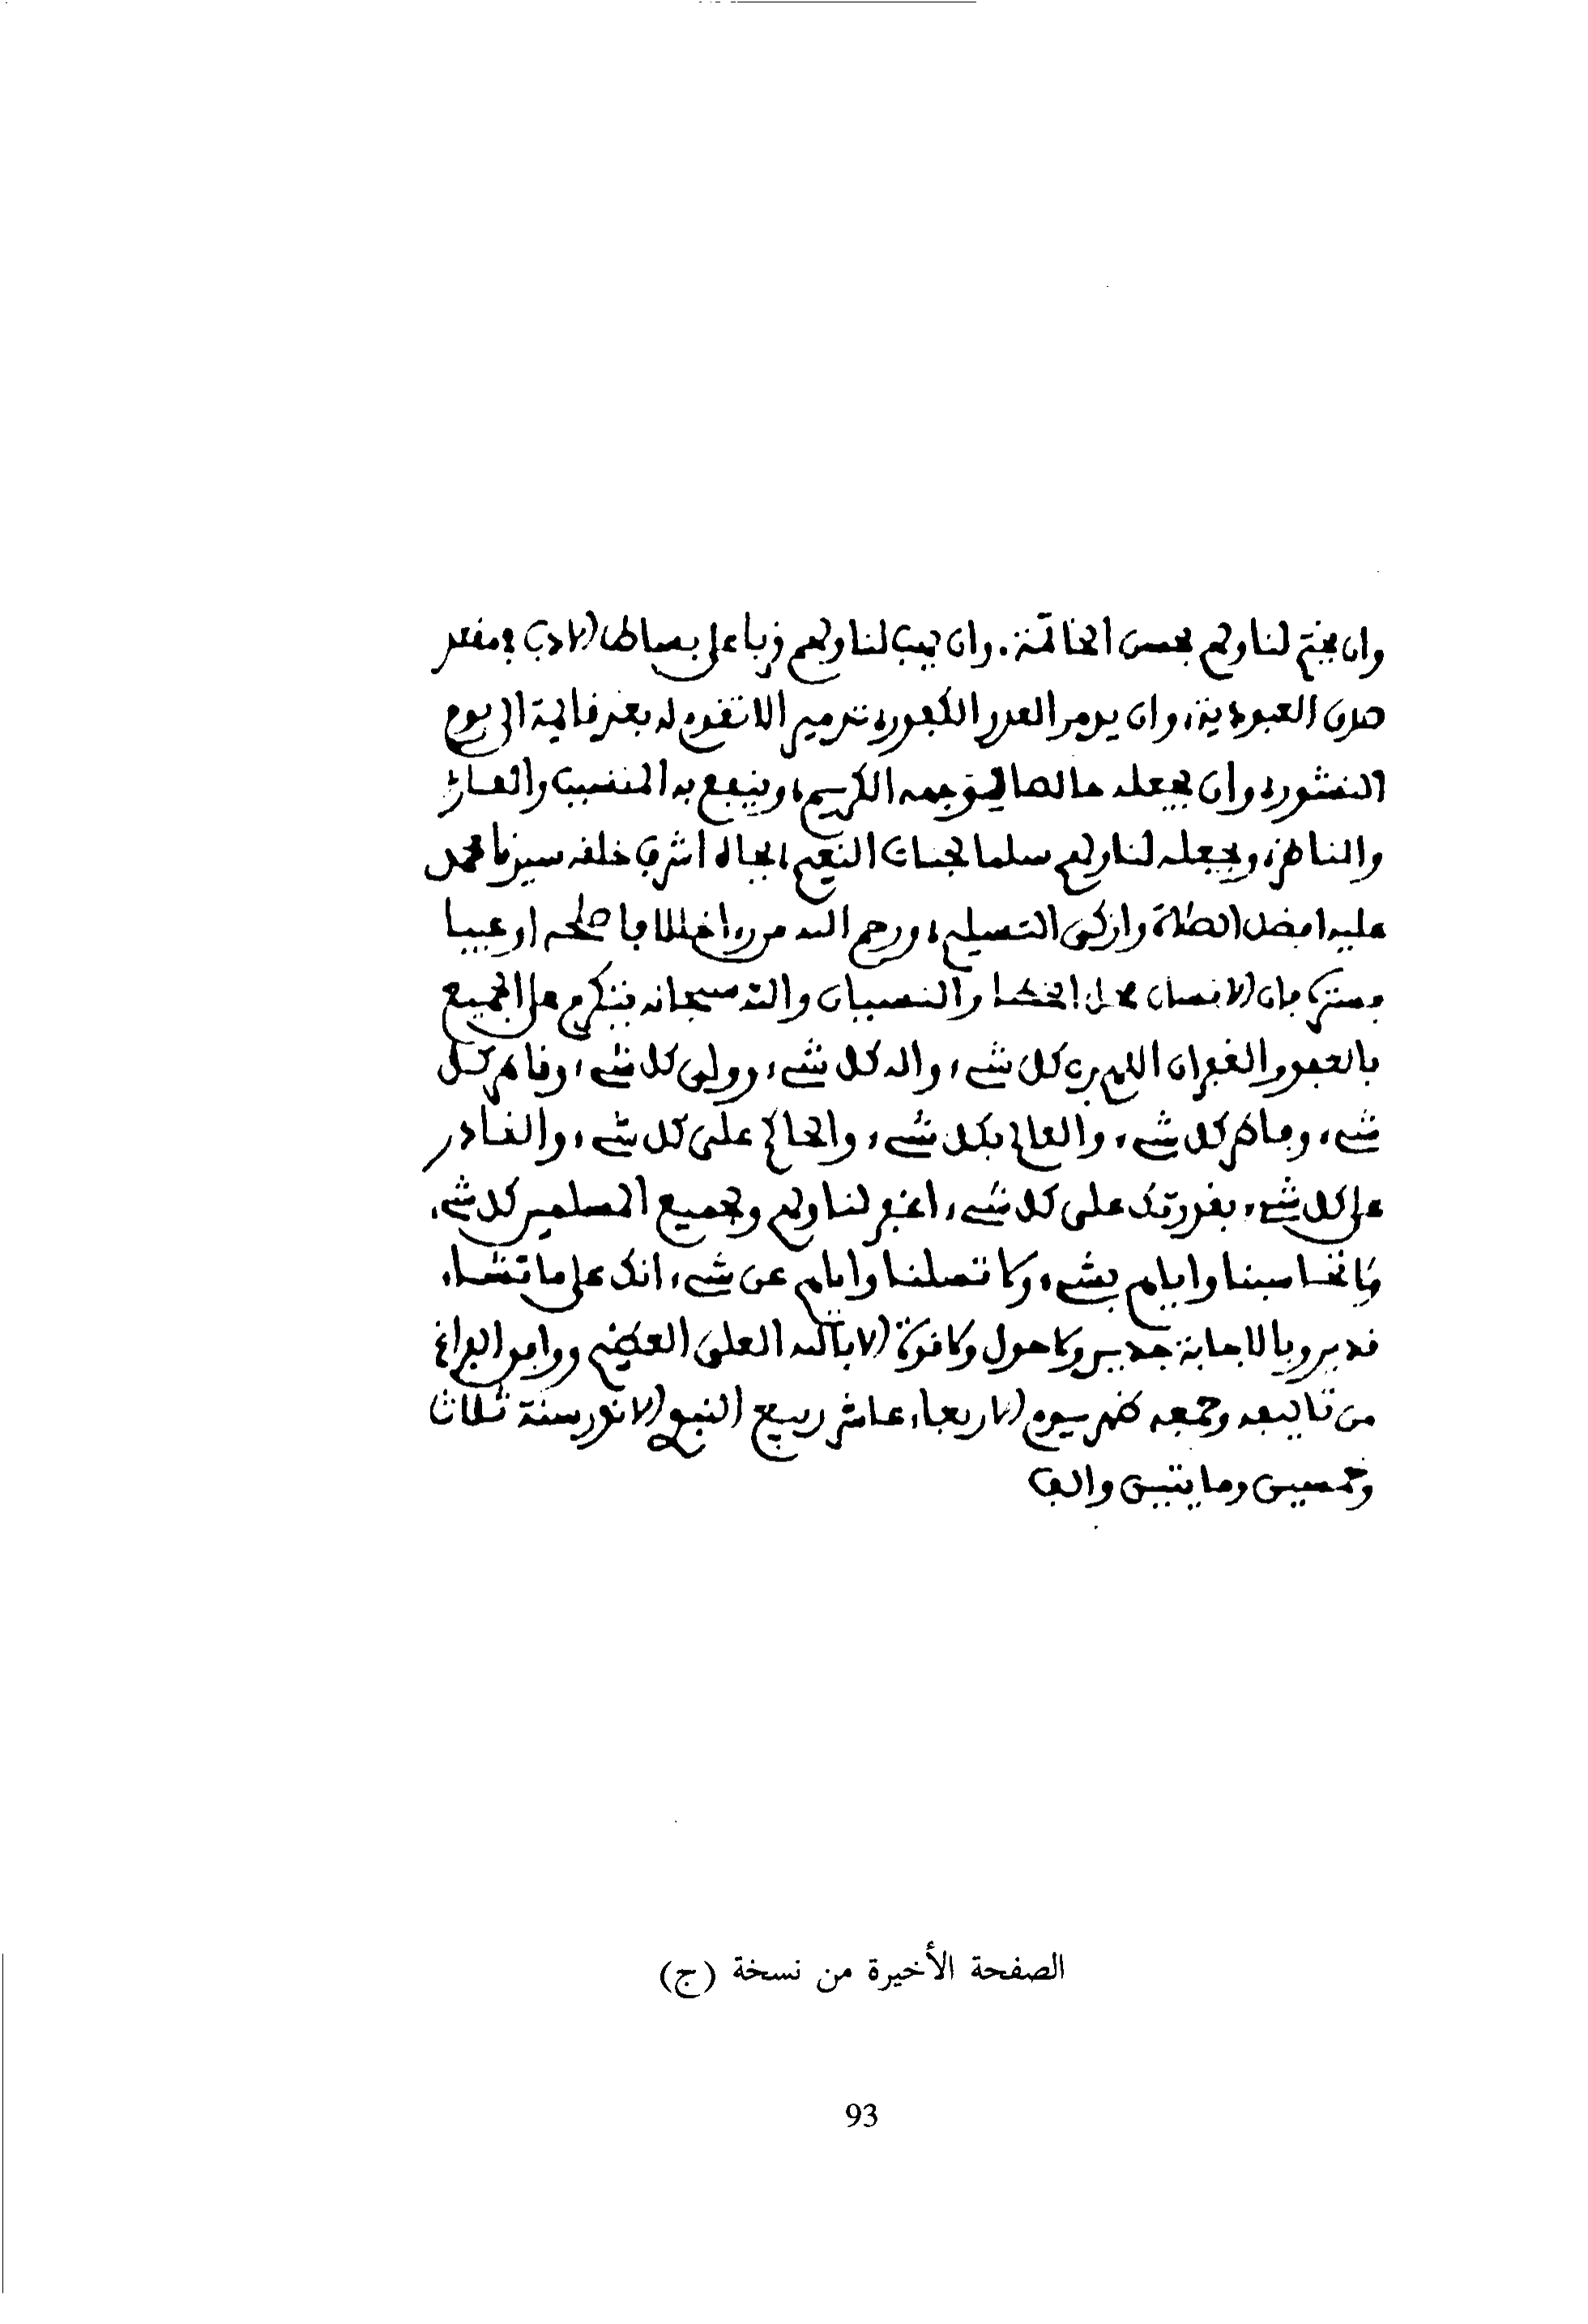 وان يختم لنا ولهم بحسن الخاتمة. وان يهب لنا ولهم قربا على بساط الادب في مقعد
صدق العبودية، وان يدمر العدو الكفور، تدميرا لا تقوم له بعد قائمة الى يوم
النشور، وان يجعله خالصا لوجهه الكريم، وينفع به المنتسب والقارئ
والناظر، ويجعله لنا ولهم سلما لجنات النعيم، بجاه اشرف خلقه سيدنا محمد
عليه افضل الصلاة وازكى التسليم، ورحم الله من رءا خللا فاصلحه او عيبا
فستره فان الانسان محل الخطا والنسيان والله سبحانه يتكرم على الجميع
بالعفو والغفران اللهم رب كل شيء، واله كل شيء، وولي كل شيء، وقاهر كل
شيء، وفاطر كل شيء، والعالم بكل شيء، والحاكم على كل شيء، والقادر
على كل شيء، بقدرتك على كل شيء، اغفر لنا ولهم ولجميع المسلمين كل شيء،
ولا تحاسبنا واياهم بشيء، ولا تسلنا واياهم عن شيء، انك على ما تشاء
قدير وبالاجابة جدير ولا حول ولا قوة الا بالله العلي العظيم ووافق الفراغ
من تاليفه وجمعه ظهر يوم الاربعاء عاشر ربيع النبوي الانور سنة ثلاث
وخمسين ومايتين والف
الصفحة الأخيرة من نسخة (ج)
93